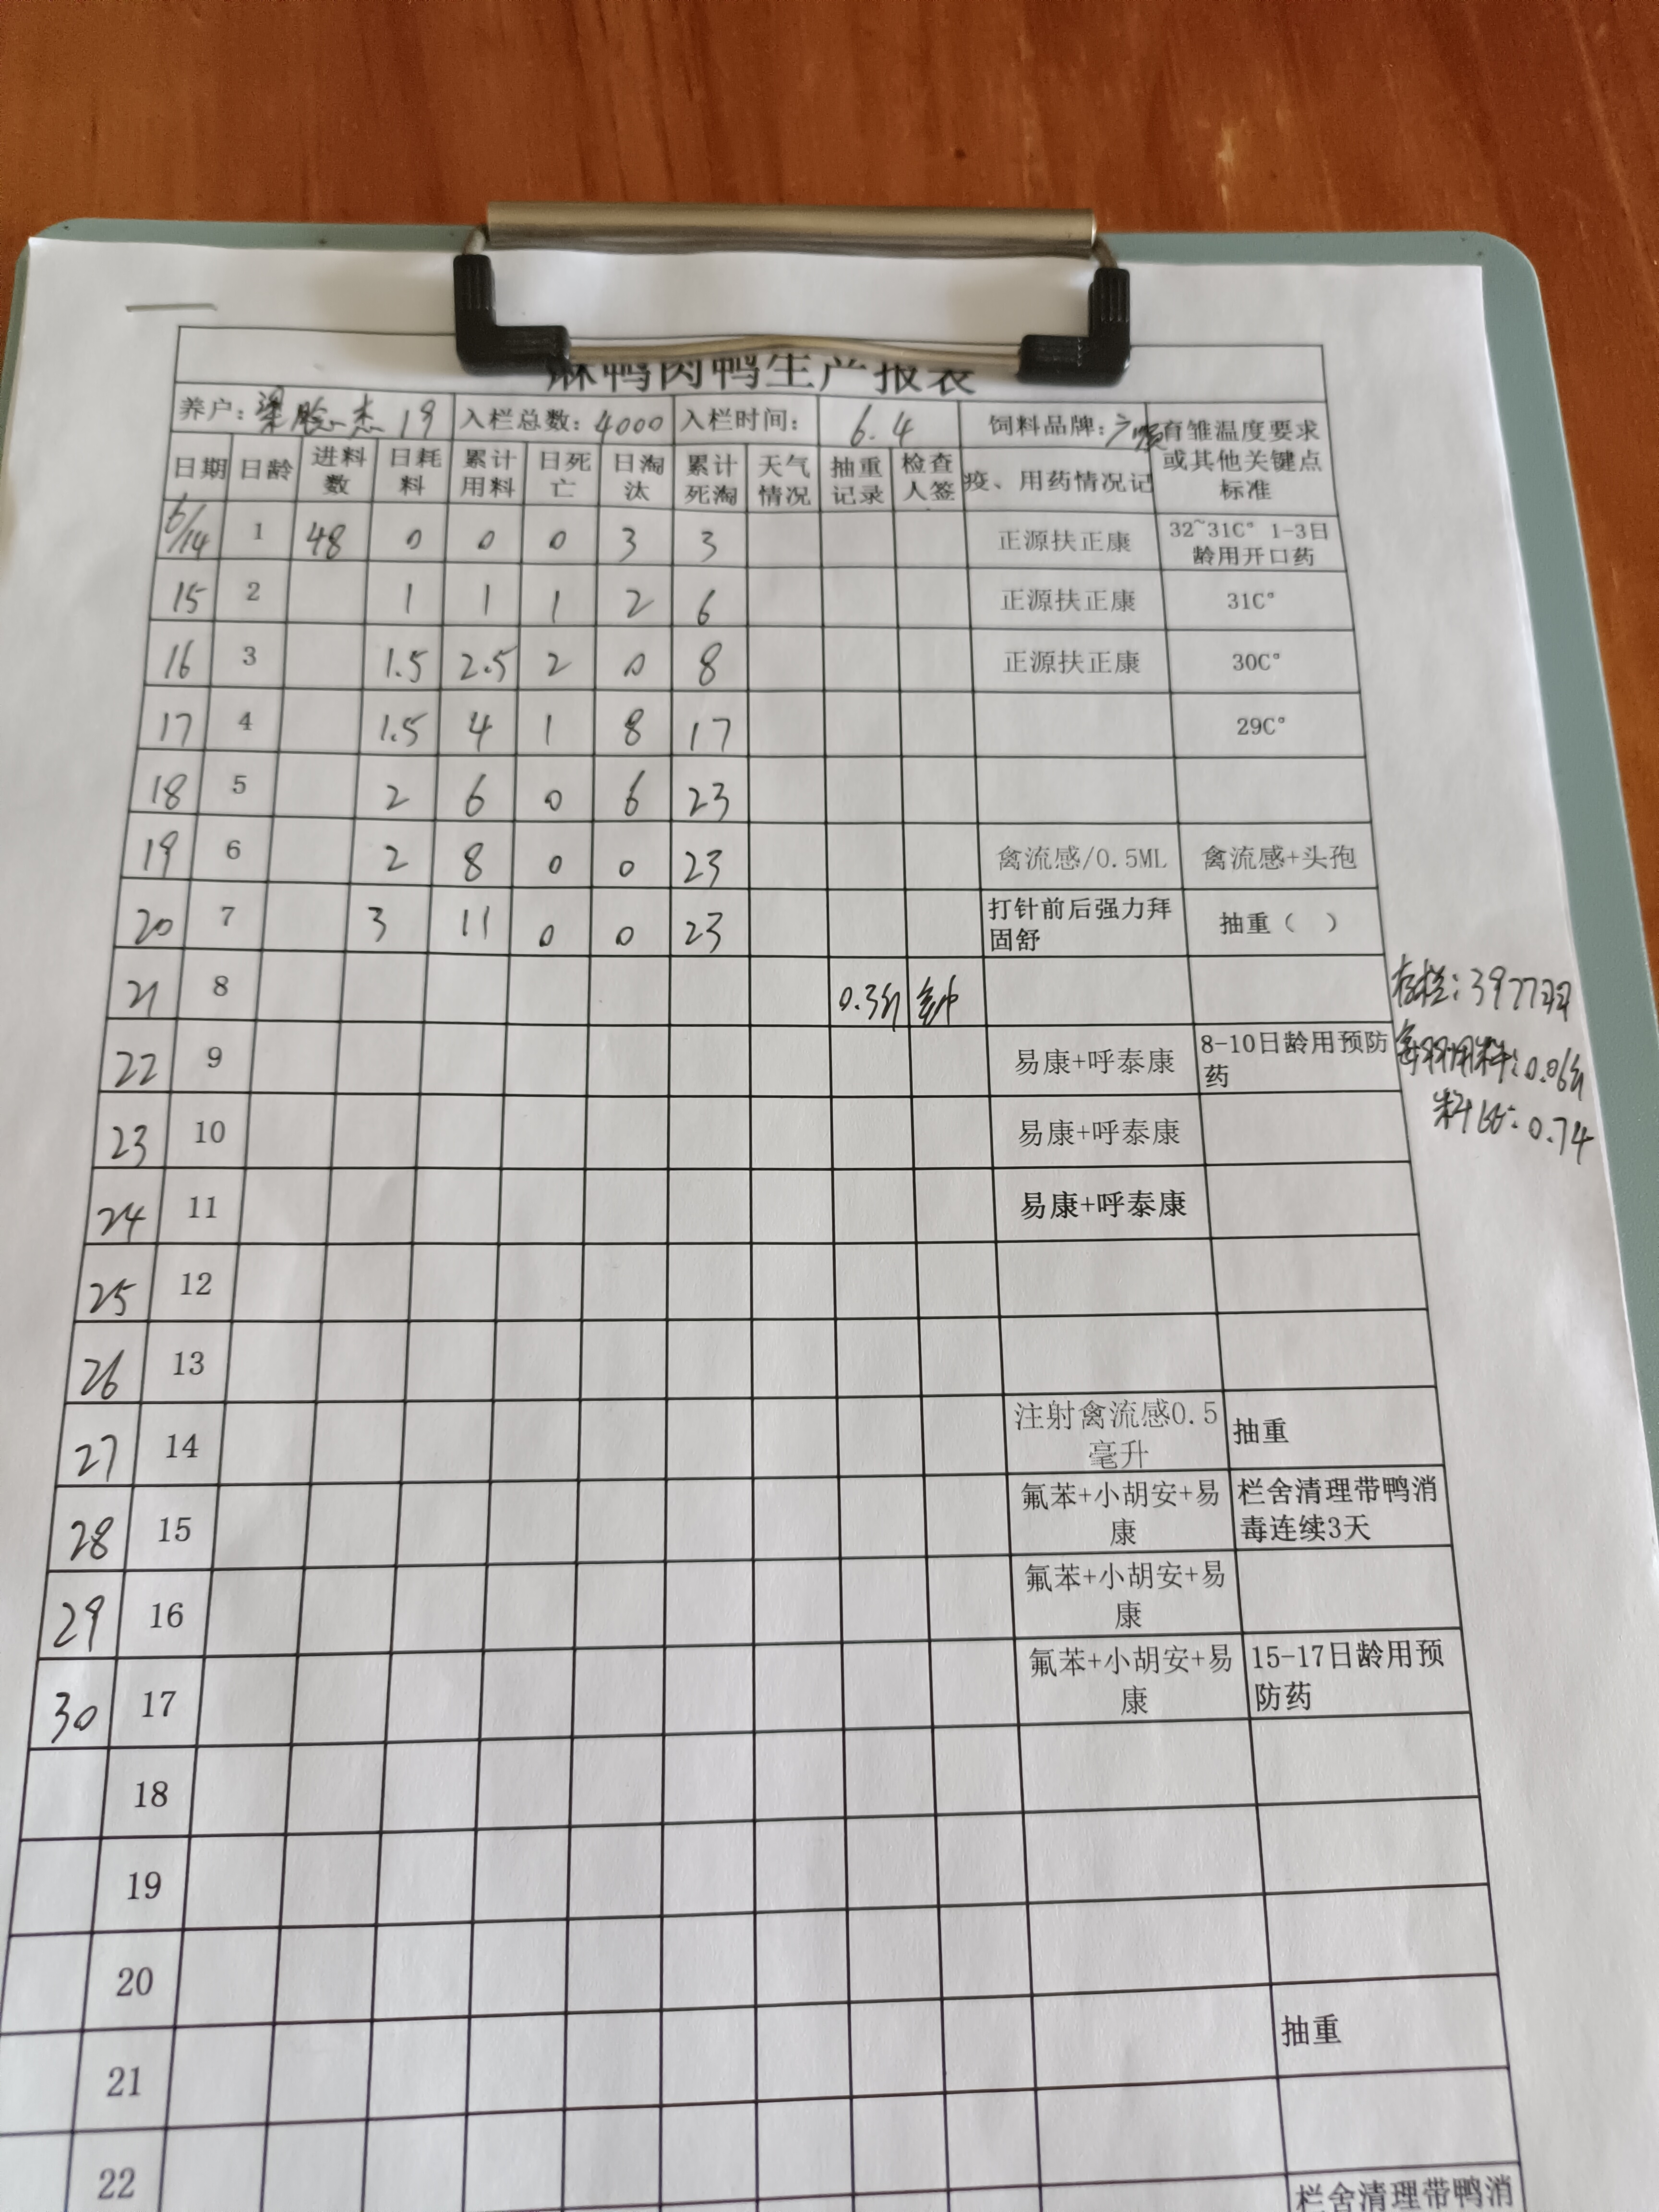 麻鸭肉鸭生产报表
养户: 梁 杰 19 入栏总数: 4000 入栏时间: 6.4 饲料品牌: 育雏温度要求或其他关键点标准
日期 日龄 进料数 日耗料 累计用料 日死亡 日淘汰 累计死淘 天气情况 抽重记录 检查人签 疫、用药情况记
6/14 1 48 0 0 0 3 3 正源扶正康 32~31C° 1-3日龄用开口药
15 2 1 1 1 2 6 正源扶正康 31C°
16 3 1.5 2.5 2 0 8 正源扶正康 30C°
17 4 1.5 4 1 8 17 29C°
18 5 2 6 0 6 23
19 6 2 8 0 0 23 禽流感/0.5ML 禽流感+头孢
20 7 3 11 0 0 23 打针前后强力拜固舒 抽重（ ）
21 8 0.3斤 存栏: 3977羽
22 9 易康+呼泰康 8-10日龄用预防药 每羽用料: 0.06斤
23 10 易康+呼泰康 料比: 0.74
24 11 易康+呼泰康
25 12
26 13
27 14 注射禽流感0.5毫升 抽重
28 15 氟苯+小胡安+易康 栏舍清理带鸭消毒连续3天
29 16 氟苯+小胡安+易康
30 17 氟苯+小胡安+易康 15-17日龄用预防药
18
19
20
21 抽重
22 栏舍清理带鸭消